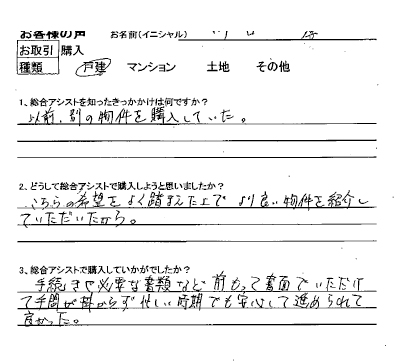 お客様の声 お名前(イニシャル) 様
お取引 購入
種類 戸建 マンション 土地 その他
1、総合アシストを知ったきっかけは何ですか?
以前、別の物件を購入していた。
2、どうして総合アシストで購入しようと思いましたか?
こちらの希望をよく踏まえた上で より良い物件を紹介し
ていただいたから。
3、総合アシストで購入していかがでしたか?
手続きや必要な書類など 前もって書面でいただけ
て手間が掛からず 忙しい時期でも安心して進められて
良かった。